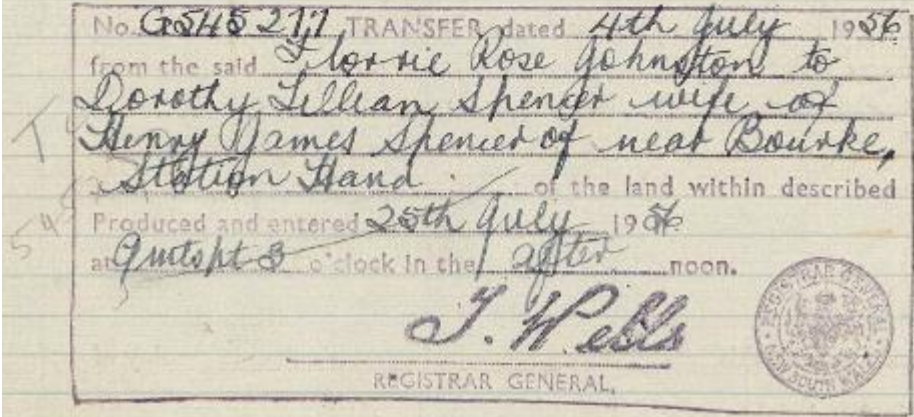 No. G545277 TRANSFER dated 4th July 1956
from the said Florrie Rose Johnston to
Dorothy Lillian Spencer wife of
Henry James Spencer of near Bourke,
Station Hand of the land within described
Produced and entered 25th July 1956
at 9 mts pt 3 o'clock in the after noon.
J. Wells
REGISTRAR GENERAL.
REGISTRAR GENERAL
NEW SOUTH WALES